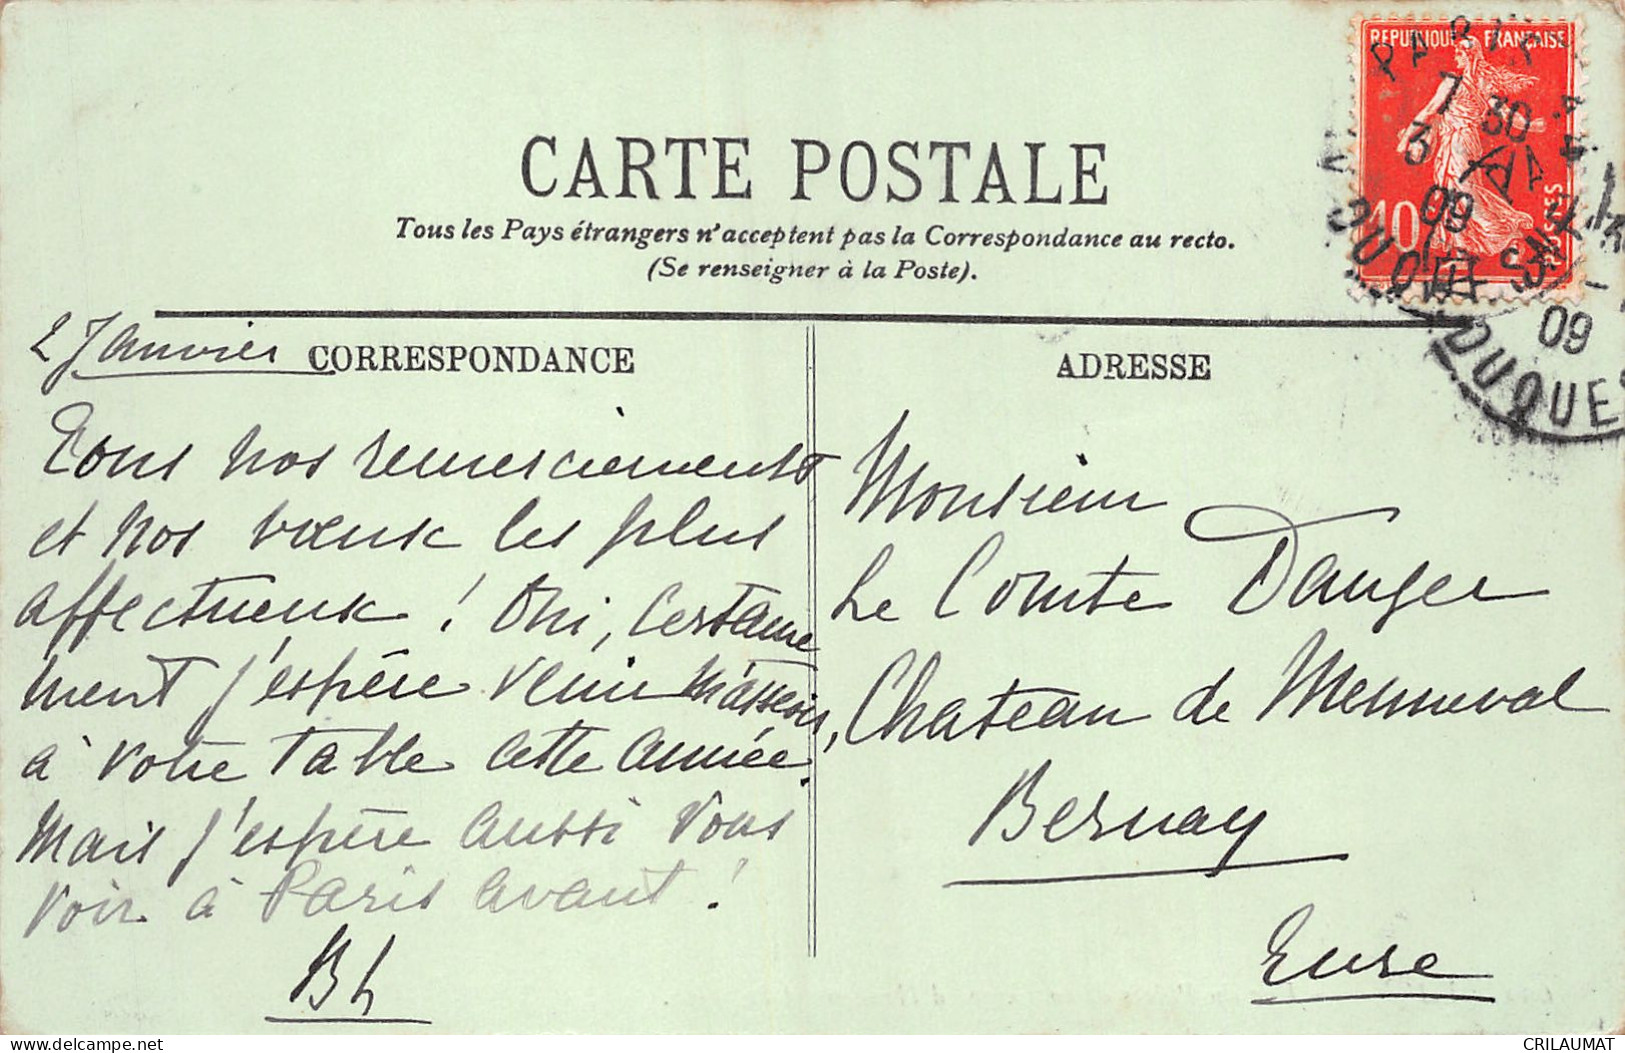 REPUBLIQUE FRANÇAISE
10
POSTES
PARIS
7 30
3
09
DUQUESNE
09
DUQUES
CARTE POSTALE
Tous les Pays étrangers n'acceptent pas la Correspondance au recto.
(Se renseigner à la Poste).
2 Janvier
CORRESPONDANCE
Tous nos remerciements
et nos vœux les plus
affectueux ! Oui, certaine
ment j'espère venir m'asseoir,
à votre table cette année.
Mais j'espère aussi vous
voir à Paris avant !
Bh
ADRESSE
Monsieur
Le Comte Danger
Chateau de Menneval
Bernay
Eure
delcampe.net
CRILAUMAT